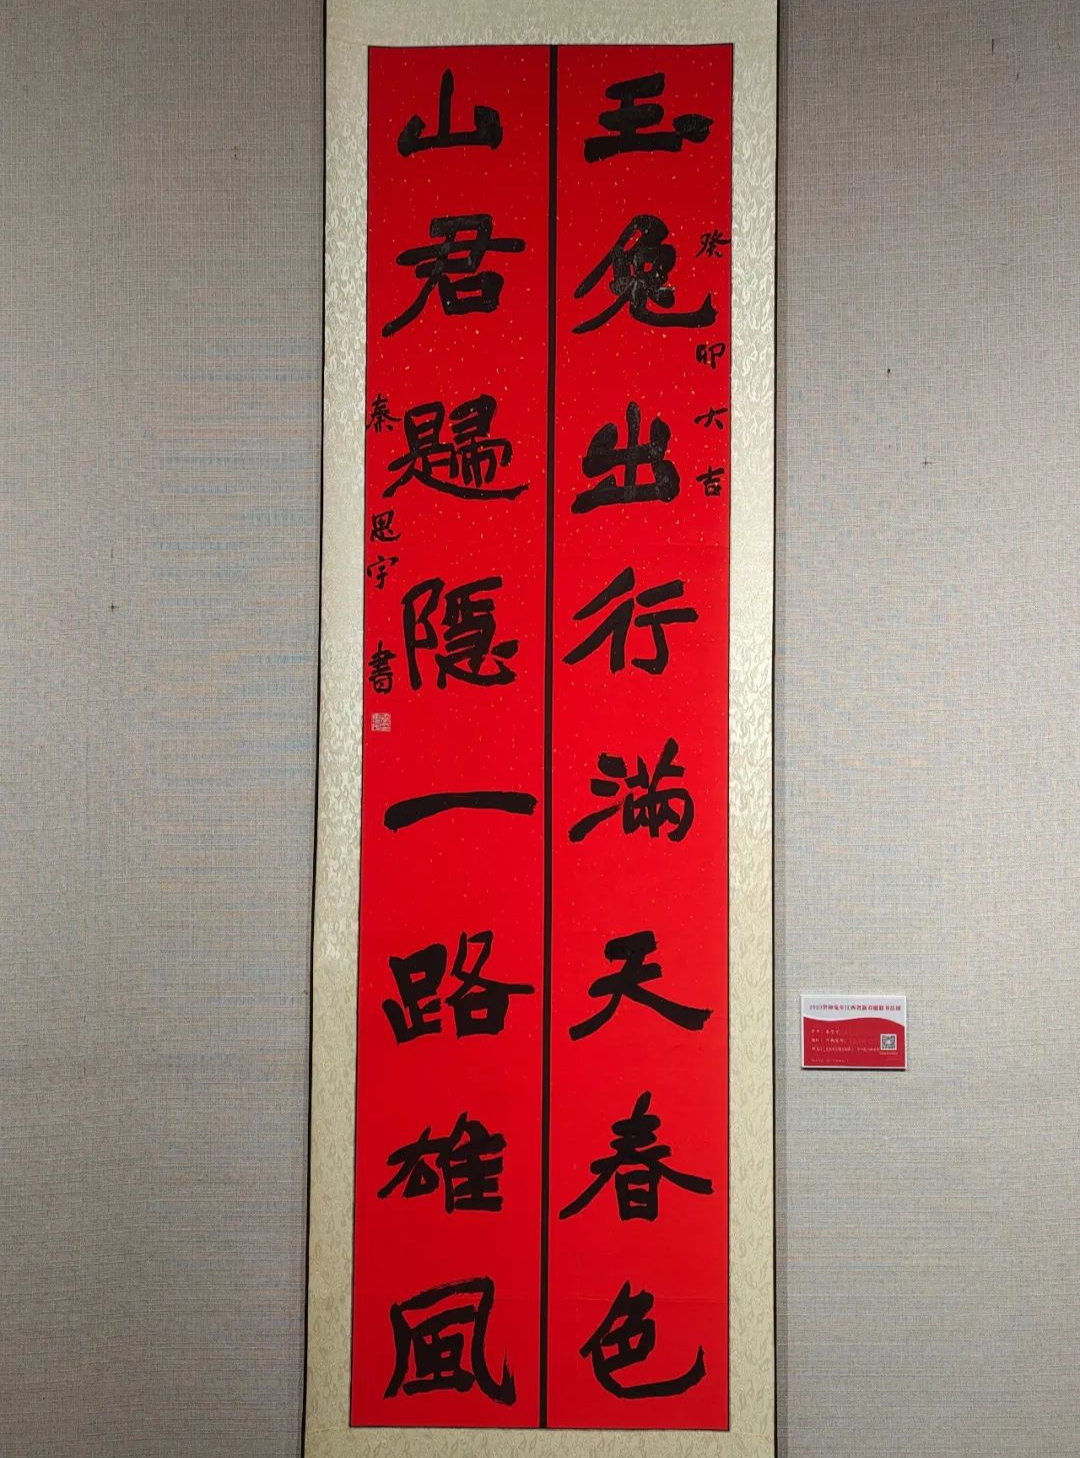 玉兔出行满天春色
癸卯大吉
山君歸隱一路雄風
秦思宇書